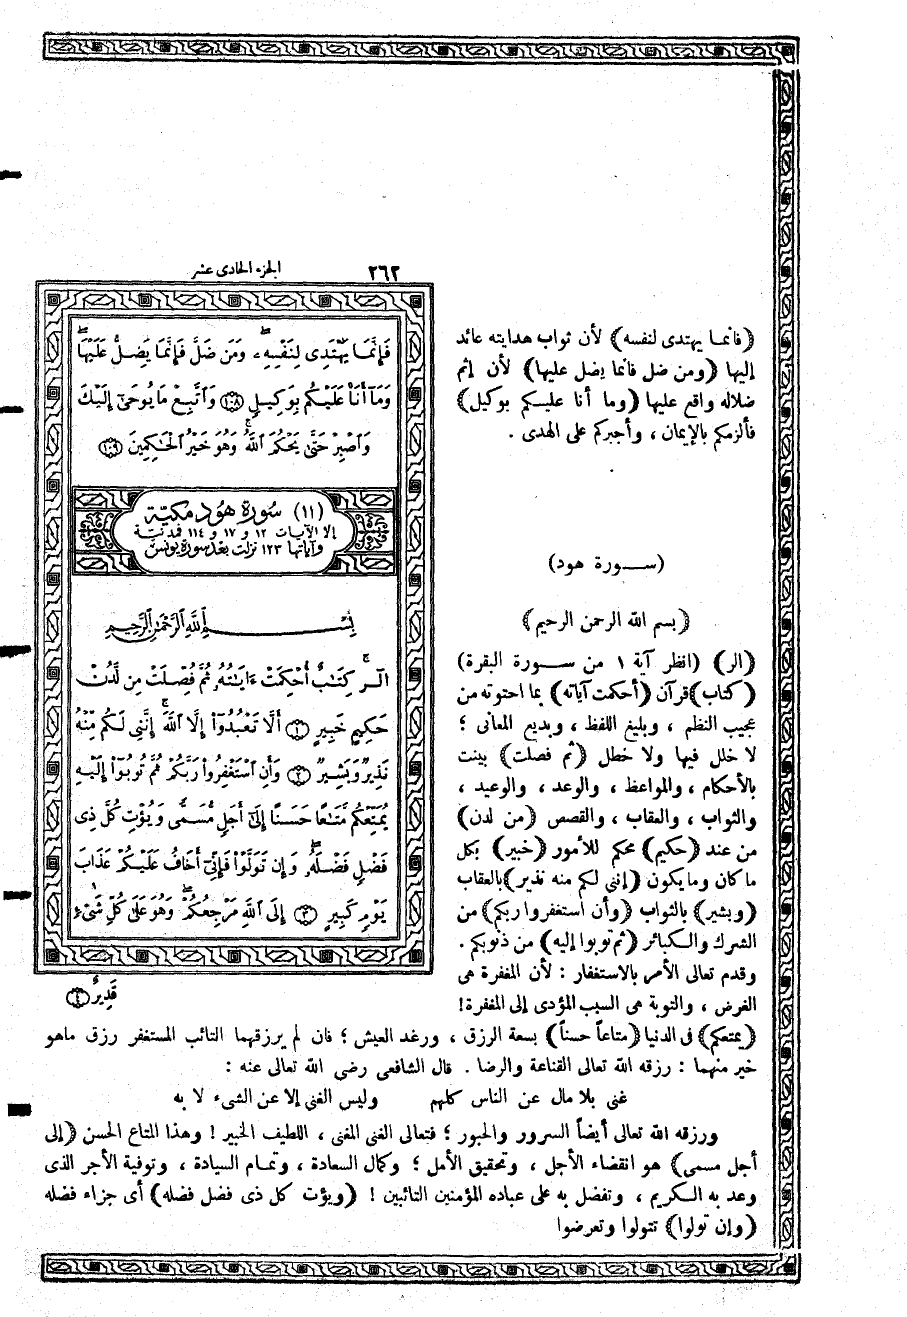 الجزء الحادى عشر
٢٦٢
فَإِنَّمَا يَهْتَدِى لِنَفْسِهِۦ وَمَن ضَلَّ فَإِنَّمَا يَضِلُّ عَلَيْهَا
وَمَآ أَنَا۠ عَلَيْكُم بِوَكِيلٍ ١٠٨ وَٱتَّبِعْ مَا يُوحَىٰٓ إِلَيْكَ
وَٱصْبِرْ حَتَّىٰ يَحْكُمَ ٱللَّهُ وَهُوَ خَيْرُ ٱلْحَٰكِمِينَ ١٠٩
(١١) سورة هود مكية
إلا الآيات ١٢ و ١٧ و ١١٤ فمدنية
وآياتها ١٢٣ نزلت بعد سورة يونس
بِسْمِ ٱللَّهِ ٱلرَّحْمَٰنِ ٱلرَّحِيمِ
الٓر كِتَٰبٌ أُحْكِمَتْ ءَايَٰتُهُۥ ثُمَّ فُصِّلَتْ مِن لَّدُنْ
حَكِيمٍ خَبِيرٍ ١ أَلَّا تَعْبُدُوٓا۟ إِلَّا ٱللَّهَ إِنَّنِى لَكُم مِّنْهُ
نَذِيرٌ وَبَشِيرٌ ٢ وَأَنِ ٱسْتَغْفِرُوا۟ رَبَّكُمْ ثُمَّ تُوبُوٓا۟ إِلَيْهِ
يُمَتِّعْكُم مَّتَٰعًا حَسَنًا إِلَىٰٓ أَجَلٍ مُّسَمًّى وَيُؤْتِ كُلَّ ذِى
فَضْلٍ فَضْلَهُۥ وَإِن تَوَلَّوْا۟ فَإِنِّىٓ أَخَافُ عَلَيْكُمْ عَذَابَ
يَوْمٍ كَبِيرٍ ٣ إِلَى ٱللَّهِ مَرْجِعُكُمْ وَهُوَ عَلَىٰ كُلِّ شَىْءٍ
قَدِيرٌ ٤
(فانما يهتدى لنفسه) لأن ثواب هدايته عائد
إليها (ومن ضل فانما يضل عليها) لأن إثم
ضلاله واقع عليها (وما أنا عليكم بوكيل)
فألزمكم بالإيمان ، وأجبركم على الهدى .
(ســورة هود)
(بسم الله الرحمن الرحيم)
(الر) (انظر آية ١ من ســورة البقرة)
(كتاب) قرآن (أحكمت آياته) بما احتوته من
عجيب النظم ، وبليغ اللفظ ، وبديع المعانى ؛
لا خلل فيها ولا خطل (ثم فصلت) بينت
بالأحكام ، والمواعظ ، والوعد ، والوعيد ،
والثواب ، والعقاب ، والقصص (من لدن)
من عند (حكيم) محكم للأمور (خبير) بكل
ما كان وما يكون (إننى لكم منه نذير) بالعقاب
(وبشير) بالثواب (وأن استغفروا ربكم) من
الشرك والكبائر (ثم توبوا إليه) من ذنوبكم .
وقدم تعالى الأمر بالاستغفار : لأن المغفرة هى
الغرض ، والتوبة هى السبب المؤدى إلى المغفرة!
(يمتعكم) فى الدنيا (متاعاً حسناً) بسعة الرزق ، ورغد العيش ؛ فان لم يرزقهما التائب المستغفر رزق ماهو
خير منهما : رزقه الله تعالى القناعة والرضا . قال الشافعى رضى الله تعالى عنه :
غنى بلا مال عن الناس كلهم وليس الغنى إلا عن الشىء لا به
ورزقه الله تعالى أيضاً السرور والحبور ؛ فتعالى الغنى المغنى ، اللطيف الخبير ! وهذا المتاع الحسن (إلى
أجل مسمى) هو انقضاء الأجل ، وتحقيق الأمل ؛ وكمال السعادة ، وتمام السيادة ، وتوفية الأجر الذى
وعد به الكريم ، وتفضل به على عباده المؤمنين التائبين ! (ويؤت كل ذى فضل فضله) أى جزاء فضله
(وإن تولوا) تتولوا وتعرضوا